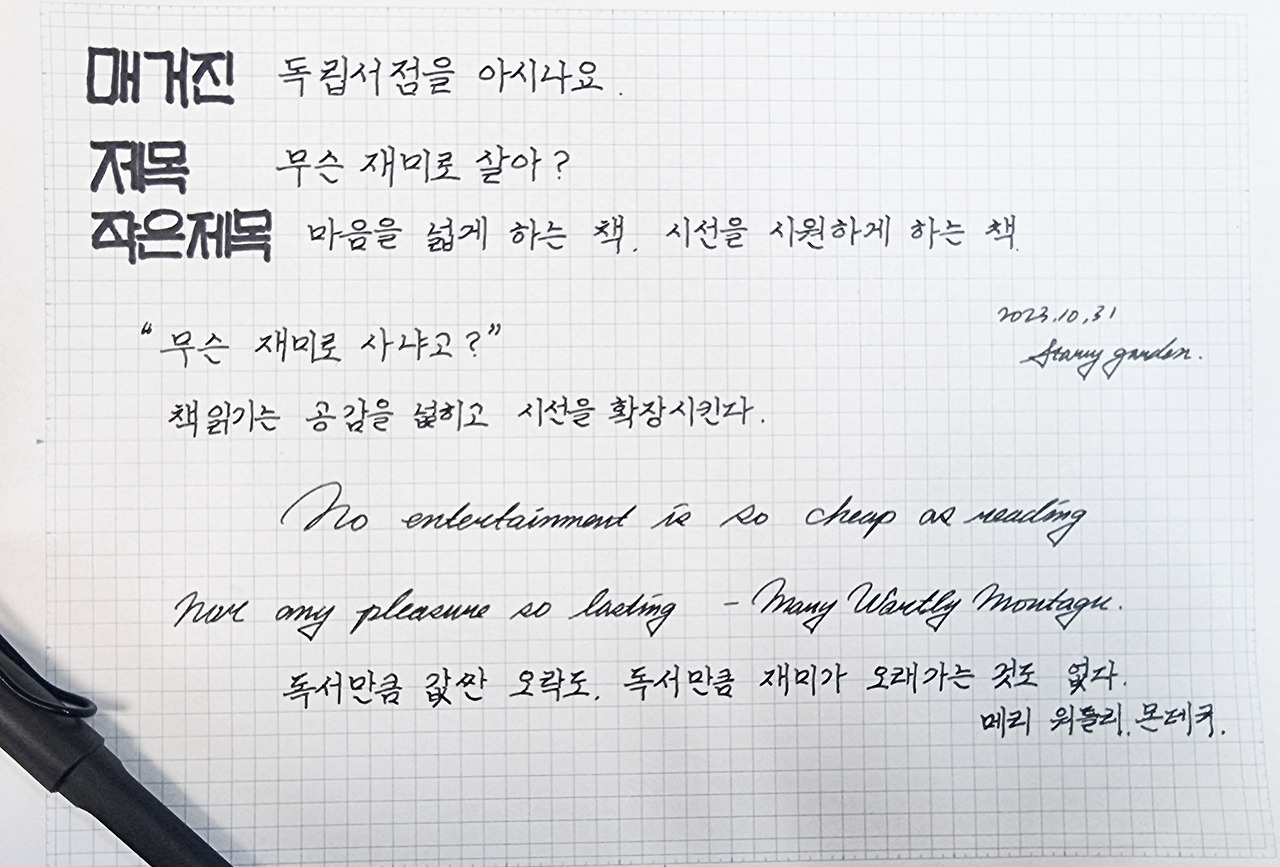 매거진 독립서점을 아시나요.
제목 무슨 재미로 살아?
작은제목 마음을 넓게 하는 책, 시선을 시원하게 하는 책.
2023.10.31
“무슨 재미로 사냐고?”
Starry garden.
책읽기는 공감을 넓히고 시선을 확장시킨다.
No entertainment is so cheap as reading
nor any pleasure so lasting - Mary Wartly Montagu.
독서만큼 값싼 오락도, 독서만큼 재미가 오래가는 것도 없다.
메리 워틀리.몬테규.